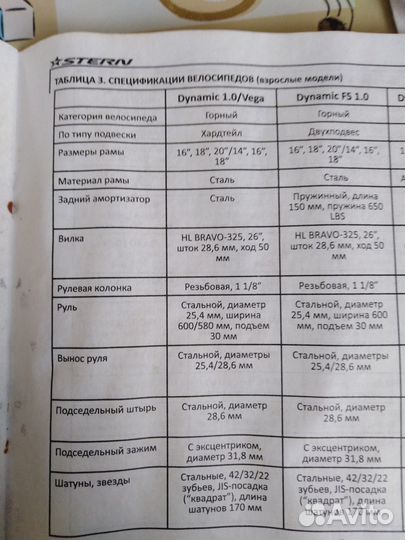 STERN
ТАБЛИЦА 3. СПЕЦИФИКАЦИИ ВЕЛОСИПЕДОВ (взрослые модели)
Dynamic 1.0/Vega Dynamic FS 1.0
Категория велосипеда Горный Горный
По типу подвески Хардтейл Двухподвес
Размеры рамы 16”, 18”, 20”/14”, 16”, 16”, 18”, 20”/14”, 16”,
18” 18”
Материал рамы Сталь Сталь
Задний амортизатор Сталь Пружинный, длина
150 мм, пружина 650
LBS
Вилка HL BRAVO-325, 26”, HL BRAVO-325, 26”,
шток 28,6 мм, ход 50 шток 28,6 мм, ход 50
мм мм
Рулевая колонка Резьбовая, 1 1/8” Резьбовая, 1 1/8”
Руль Стальной, диаметр Стальной, диаметр
25,4 мм, ширина 25,4 мм, ширина 600
600/580 мм, подъем мм, подъем 30 мм
30 мм
Вынос руля Стальной, диаметры Стальной, диаметры
25,4/28,6 мм 25,4/28,6 мм
Подседельный штырь Стальной, диаметр Стальной, диаметр
28,6 мм 28,6 мм
Подседельный зажим С эксцентриком, С эксцентриком,
диаметр 31,8 мм диаметр 31,8 мм
Шатуны, звезды Стальные, 42/32/22 Стальные, 42/32/22
зубьев, JIS-посадка зубьев, JIS-посадка
(“квадрат”), длина (“квадрат”), длина
шатунов 170 мм шатунов 172 мм
Avito